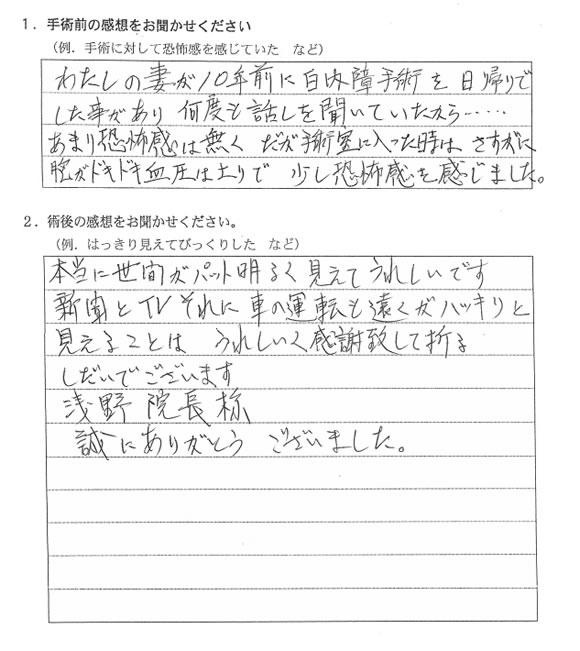 1．手術前の感想をお聞かせください
（例．手術に対して恐怖感を感じていた　など）
わたしの妻が10年前に白内障手術を日帰りで
した事があり 何度も話しを聞いていたから……
あまり恐怖感は無く だが手術室に入った時は、さすがに
胸がドキドキ血圧は上りで 少し恐怖感を感じました。
2．術後の感想をお聞かせください。
（例．はっきり見えてびっくりした　など）
本当に世間がパット明るく見えてうれしいです
新聞とTVそれに車の運転も遠くがハッキリと
見えることは うれしいく感謝致して折る
しだいでございます
浅野院長様
誠にありがとう ございました。